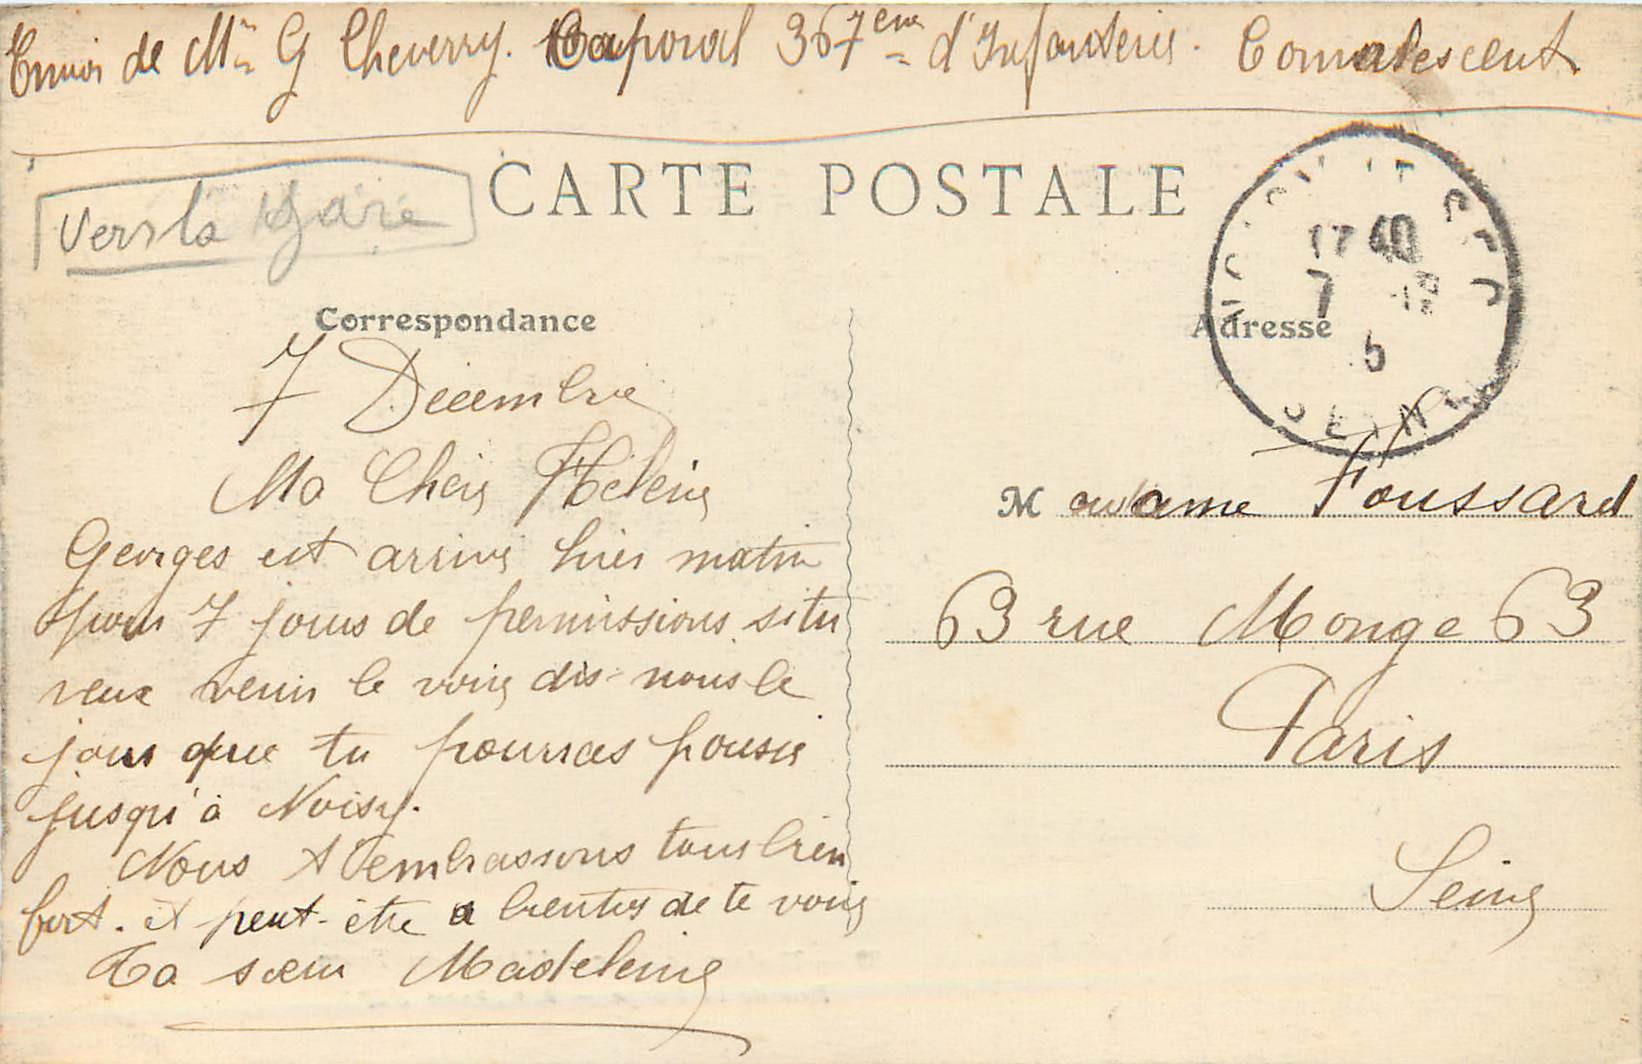 Envoi de Mr G Cheverry. Caporal 367ème d'Infanterie. Convalescent
Vers la gare
CARTE POSTALE
17 40
7 -12
5
SEINE
Correspondance
Adresse
7 Décembre
Ma Chère Hélène
Georges est arrivé hier matin
pour 7 jours de permissions si tu
veux venir le voir dis-nous le
jour que tu pourras pousser
jusqu'à Noisy.
Nous t'embrassons tous bien
fort. et peut-être a bientôt de te voir
Ta sœur Madeleine
Madame Foussard
63 rue Monge 63
Paris
Seine